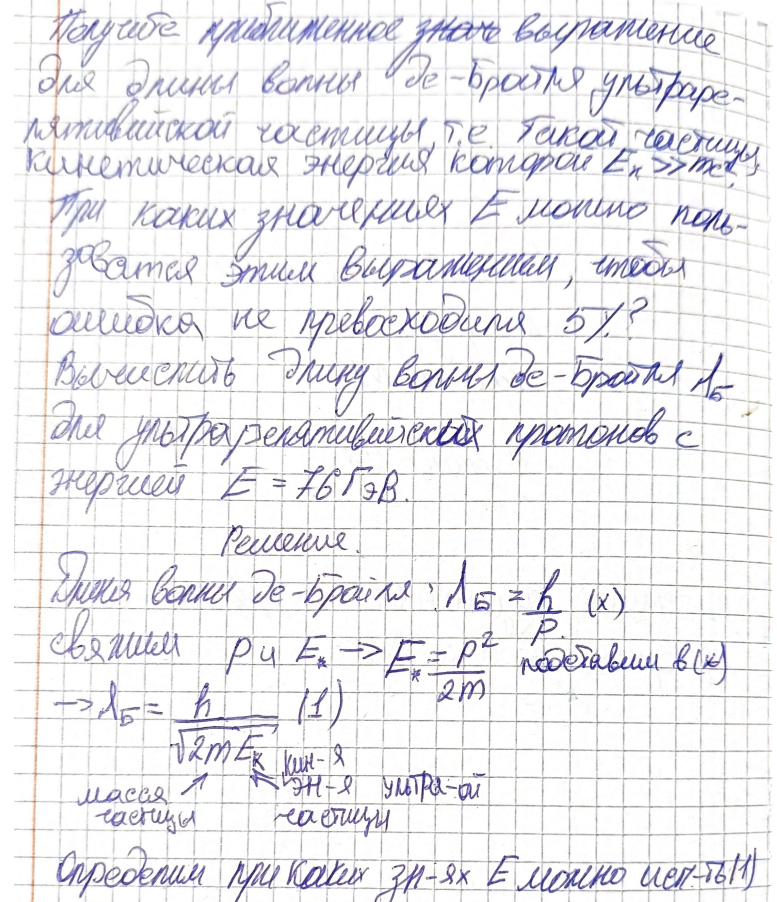 Получите приближенное выражение
для длины волны де-Бройля ультраре-
лятивийской частицы, т.е. такой частицы,
кинетическая энергия которой Eк >> mc²,
При каких значениях E можно поль-
зоватся этим выражением, чтобы
ошибка не превосходила 5%?
Вычислить длину волны де-Бройля λБ
для ультрарелативийских протонов с
энергией E = 76 ГэВ.
Решение.
Длина волны де-Бройля: λБ = h/p (x)
свяжим p и Eк → Eк = p²/2m подставим в (x)
→ λБ = h/√2mEк (1)
масса частицы
кин-я эн-я ультра-ой частицы
Определим при каких зн-ях E можно исп-ть (1)